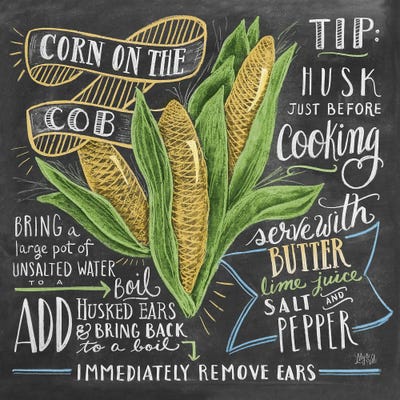 CORN ON THE
COB
TIP:
HUSK
JUST BEFORE
Cooking
BRING a
large pot of
UNSALTED WATER
TO A
Boil
ADD
HUSKED EARS
& BRING BACK
to a boil
IMMEDIATELY REMOVE EARS
serve with
BUTTER
lime juice
SALT AND
PEPPER
Lily & Val